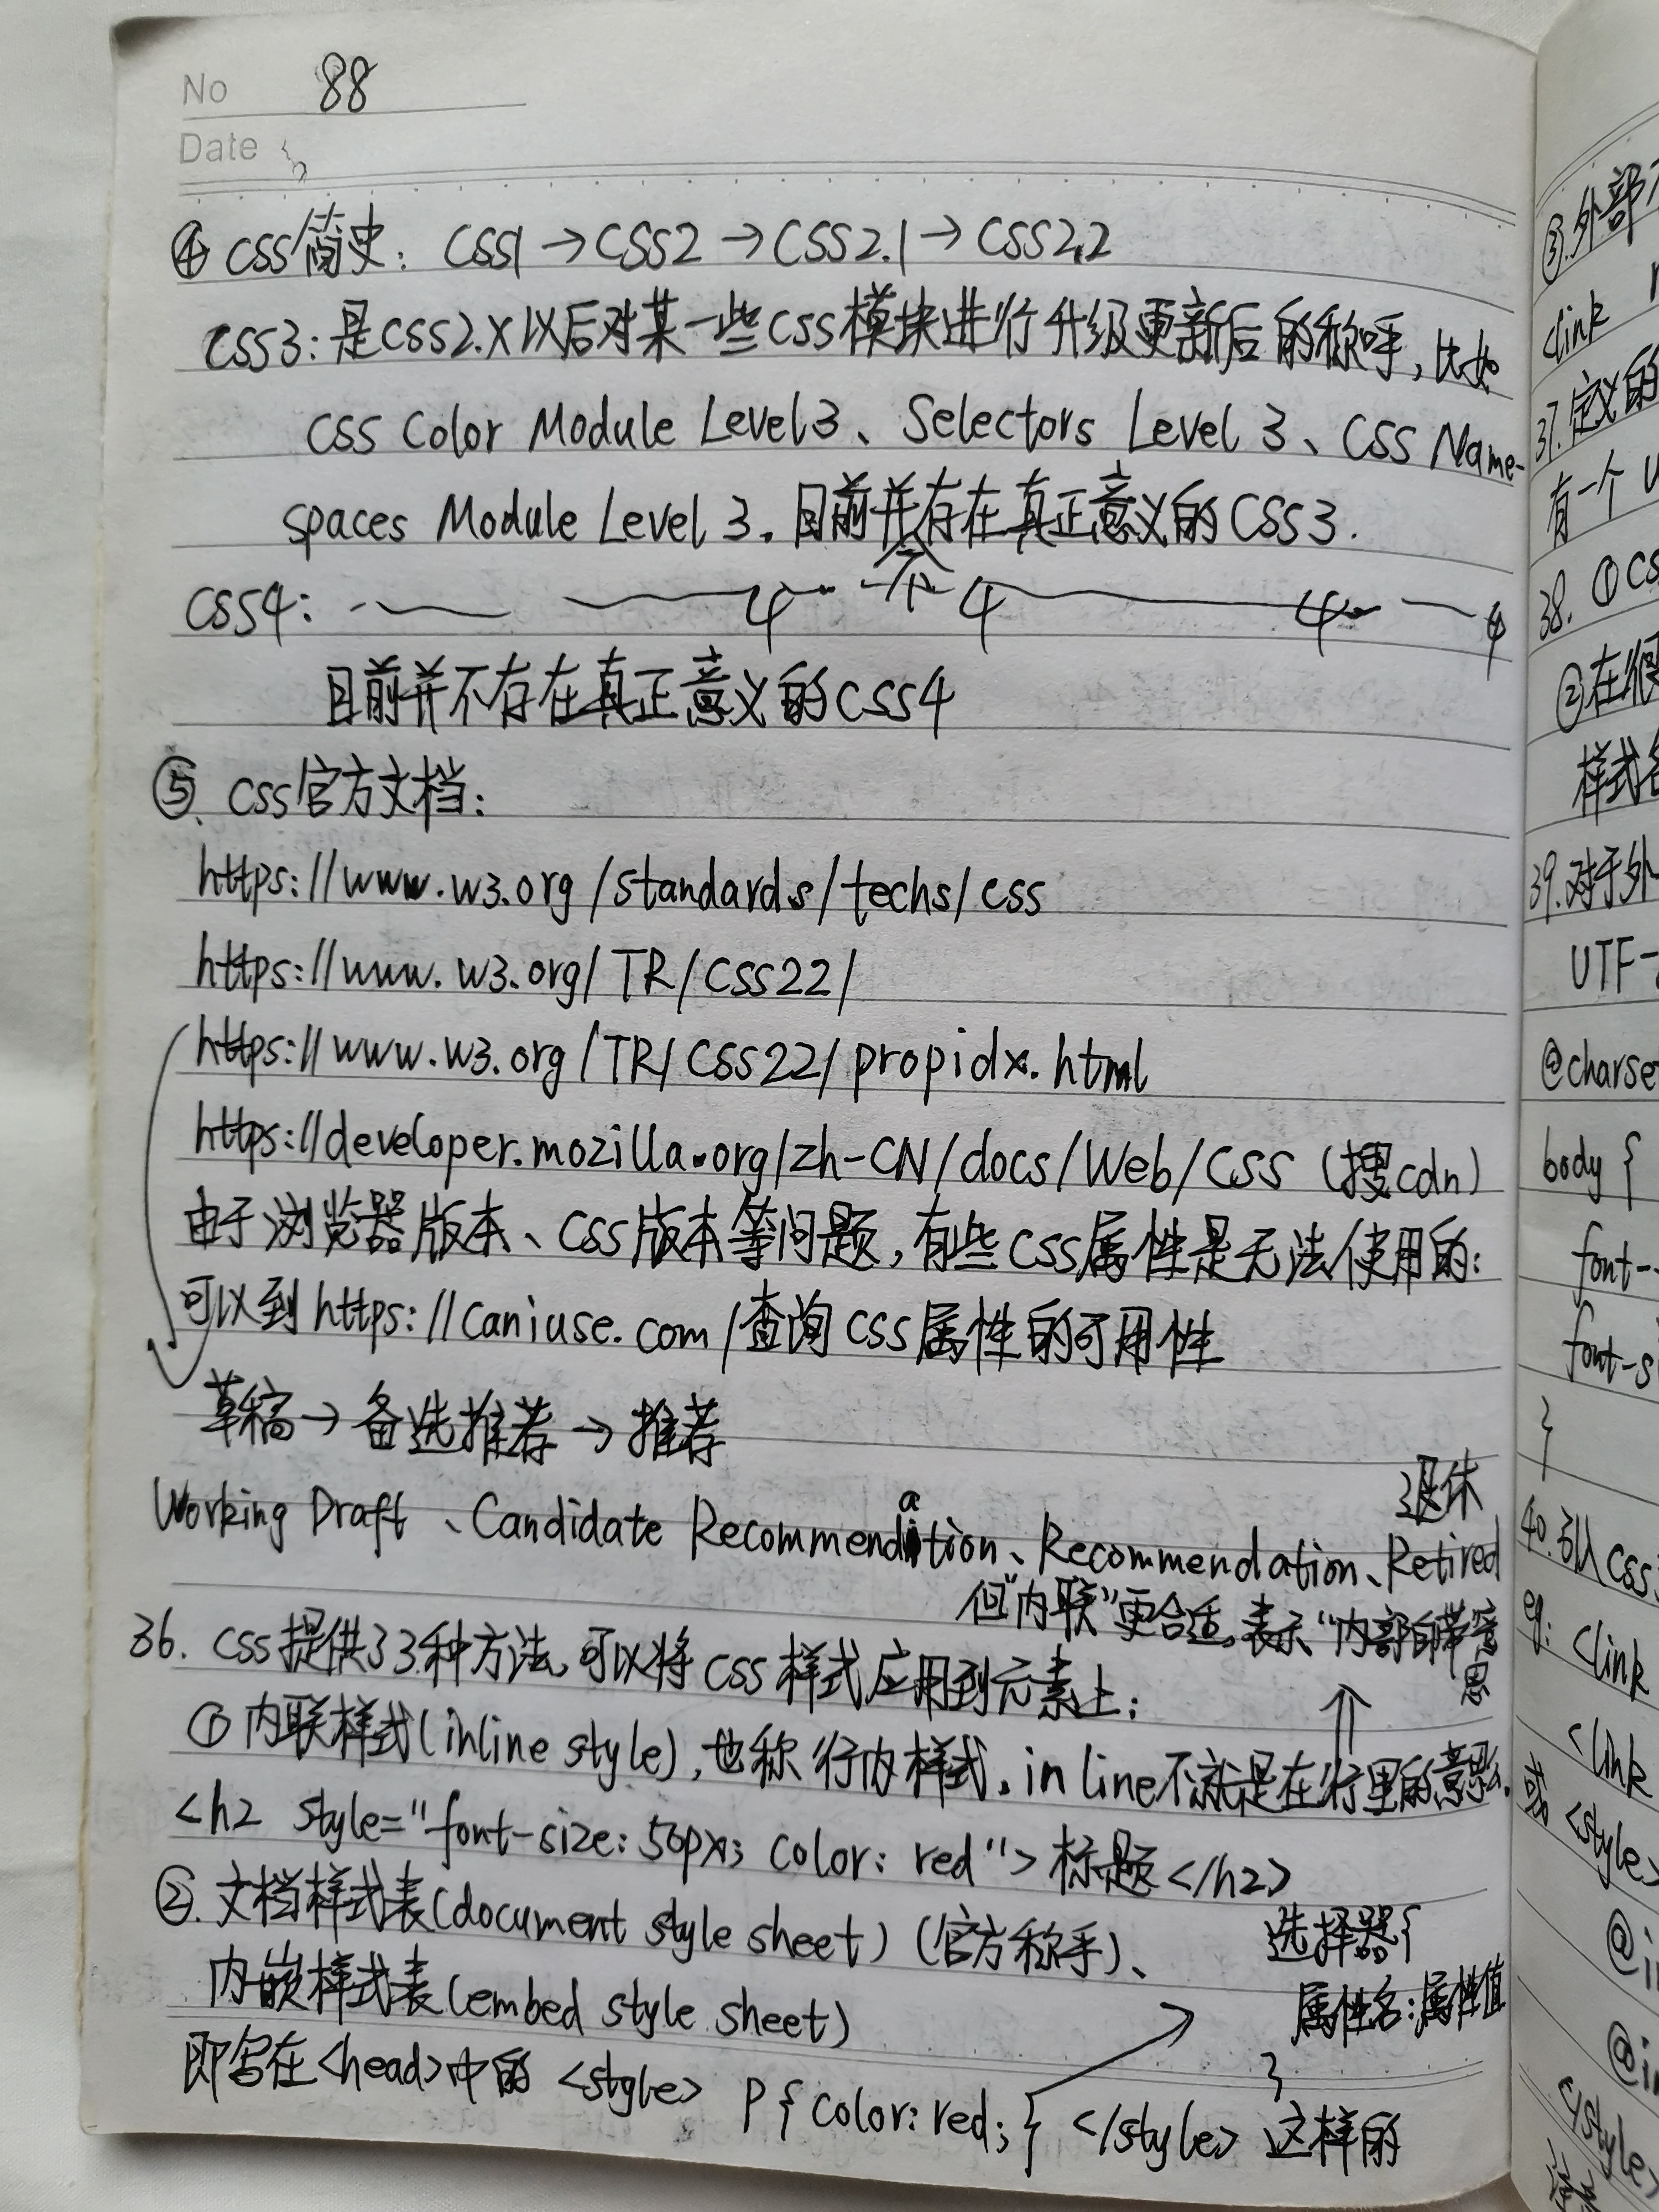 No 88
Date
④ CSS简史：CSS1→CSS2→CSS2.1→CSS2.2
CSS3：是CSS2.X以后对某一些CSS模块进行升级更新后的称呼，比如
CSS Color Module Level3、Selectors Level 3、CSS Name-
spaces Module Level 3。目前并存在真正意义的CSS3.
不
CSS4： 4 4 4 4
目前并不存在真正意义的CSS4
⑤. CSS官方文档：
https://www.w3.org/standards/techs/css
https://www.w3.org/TR/CSS22/
https://www.w3.org/TR/CSS22/propidx.html
https://developer.mozilla.org/zh-CN/docs/Web/CSS (搜cdn)
由于浏览器版本、CSS版本等问题，有些CSS属性是无法使用的：
可以到https://caniuse.com/查询CSS属性的可用性
草稿→备选推荐→推荐
退休
Working Draft、Candidate Recommendation、Recommendation、Retired
但"内联"更合适。表示"内部自带意
思
36. CSS提供了3种方法，可以将CSS样式应用到元素上：
①内联样式(inline style)，也称行内样式。in line不就是在行里的意思么。
<h2 style="font-size: 50px; color: red">标题</h2>
②. 文档样式表(document style sheet)（官方称乎）、
内嵌样式表(embed style sheet)
选择器{
属性名：属性值
}
即写在<head>中的 <style> p{color: red;} </style> 这样的
③.外部
<link
37.定义的
有一个
38. ①CS
②在很
样式
39.对于外
UTF-
@charse
body {
font-
font-s
}
40.引入CSS
eg: <link
<link
或 <style>
@i
@i
</style>